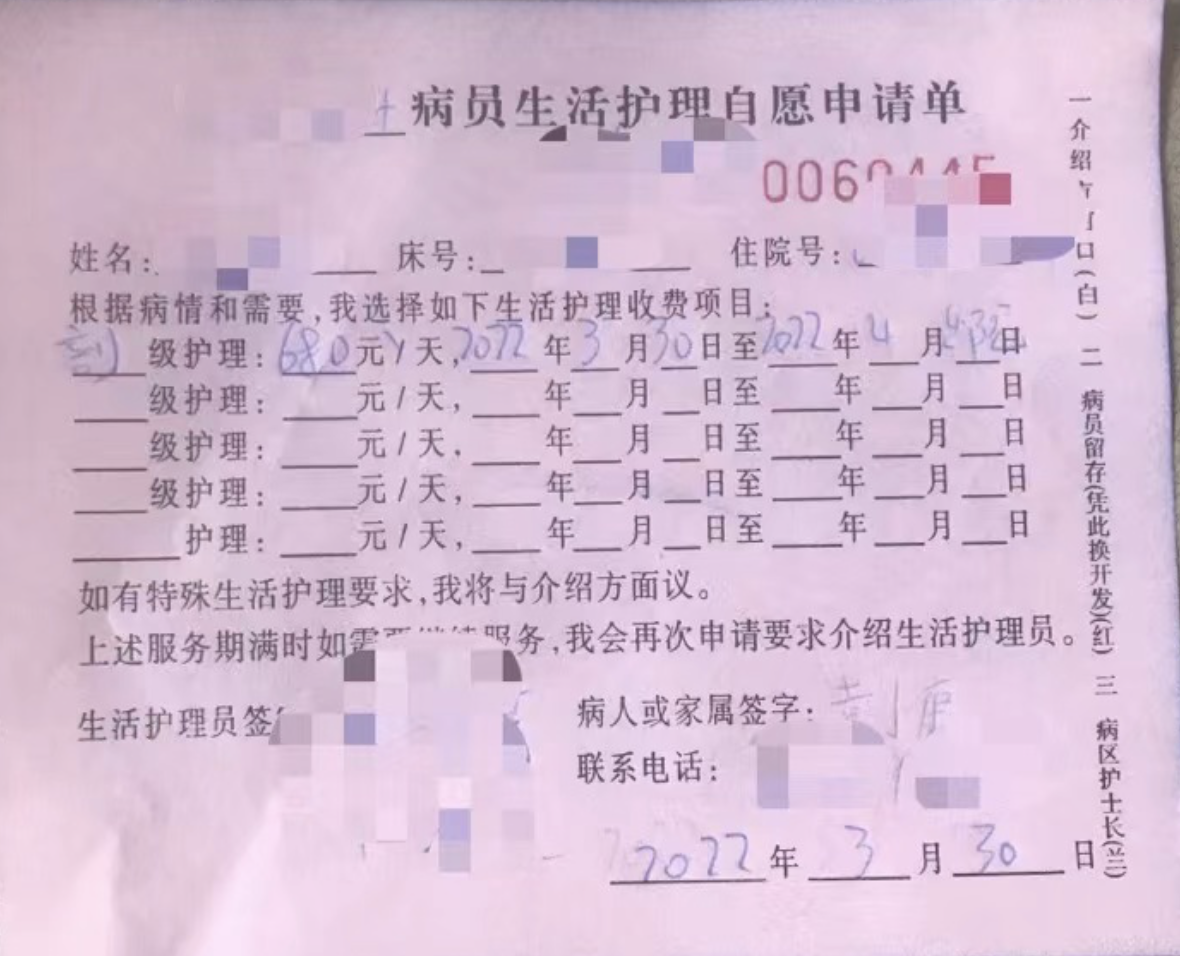 病员生活护理自愿申请单
姓名: 床号: 住院号:
根据病情和需要,我选择如下生活护理收费项目:
级护理: 680元/天, 2022年3月30日至2022年4月 日
级护理: 元/天, 年 月 日至 年 月 日
级护理: 元/天, 年 月 日至 年 月 日
级护理: 元/天, 年 月 日至 年 月 日
护理: 元/天, 年 月 日至 年 月 日
如有特殊生活护理要求,我将与介绍方面议。
上述服务期满时如需要继续服务,我会再次申请要求介绍生活护理员。
生活护理员签 病人或家属签字:
联系电话:
2022年3月30日
一介绍 (白) 二 病员留存(凭此换开发)(红) 三 病区护士长(兰)